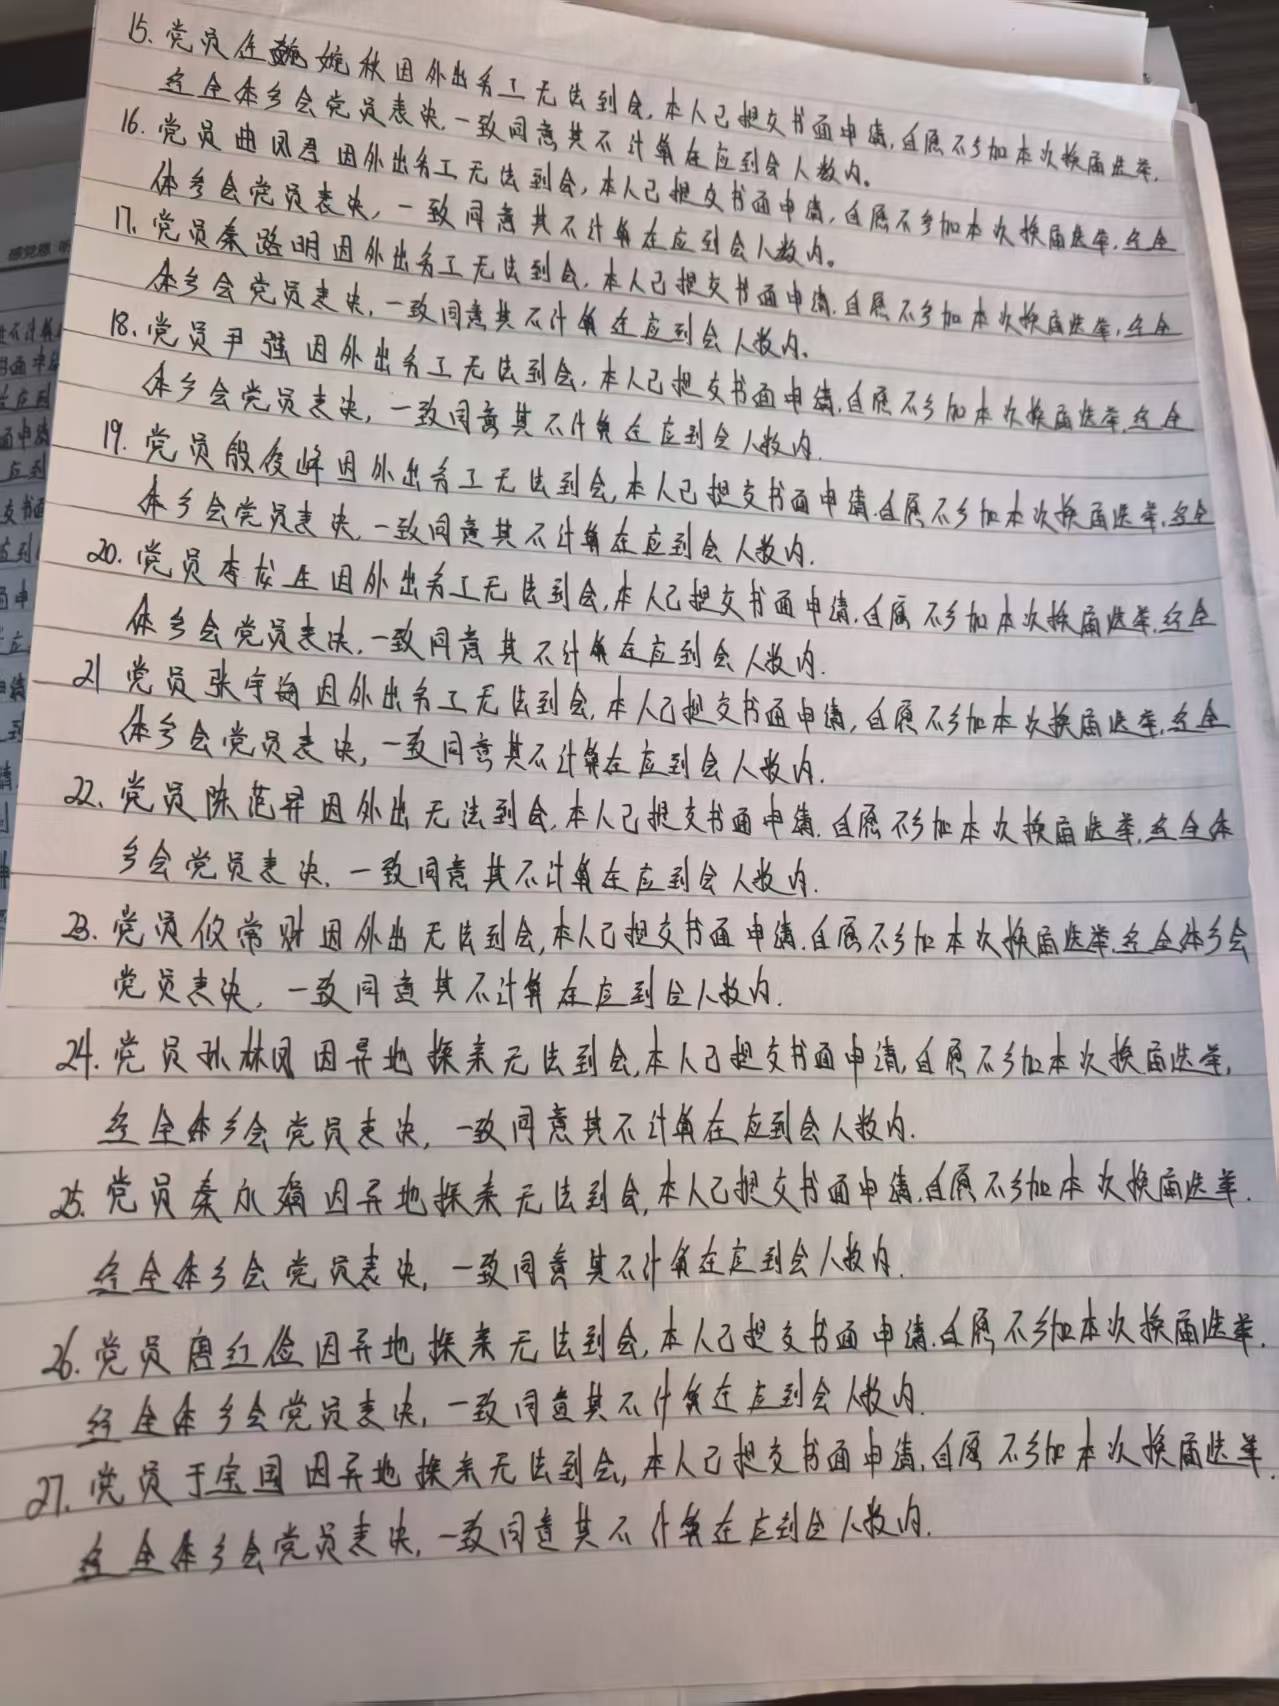 15. 党员任婉秋因外出务工无法到会,本人已提交书面申请,自愿不参加本次换届选举,
经全体参会党员表决,一致同意其不计算在应到会人数内。
16. 党员曲凤君因外出务工无法到会,本人已提交书面申请,自愿不参加本次换届选举,经全
体参会党员表决,一致同意其不计算在应到会人数内。
17. 党员秦路明因外出务工无法到会,本人已提交书面申请,自愿不参加本次换届选举,经全
体参会党员表决,一致同意其不计算在应到会人数内。
18. 党员尹强因外出务工无法到会,本人已提交书面申请,自愿不参加本次换届选举,经全
体参会党员表决,一致同意其不计算在应到会人数内.
19. 党员殷俊峰因外出务工无法到会,本人已提交书面申请,自愿不参加本次换届选举,经全
体参会党员表决,一致同意其不计算在应到会人数内.
20. 党员李龙生因外出务工无法到会,本人已提交书面申请,自愿不参加本次换届选举,经全
体参会党员表决,一致同意其不计算在应到会人数内.
21 党员张宇海因外出务工无法到会,本人已提交书面申请,自愿不参加本次换届选举,经全
体参会党员表决,一致同意其不计算在应到会人数内.
22. 党员陈范昇因外出无法到会,本人已提交书面申请,自愿不参加本次换届选举,经全体
参会党员表决,一致同意其不计算在应到会人数内.
23. 党员攸常财因外出无法到会,本人已提交书面申请,自愿不参加本次换届选举,经全体参会
党员表决,一致同意其不计算在应到会人数内.
24. 党员孙林凤因异地探亲无法到会,本人已提交书面申请,自愿不参加本次换届选举,
经全体参会党员表决,一致同意其不计算在应到会人数内.
25. 党员秦永娟因异地探亲无法到会,本人已提交书面申请,自愿不参加本次换届选举.
经全体参会党员表决,一致同意其不计算在应到会人数内.
26. 党员唐红俭因异地探亲无法到会,本人已提交书面申请,自愿不参加本次换届选举.
经全体参会党员表决,一致同意其不计算在应到会人数内.
27. 党员于宝国因异地探亲无法到会,本人已提交书面申请,自愿不参加本次换届选举.
经全体参会党员表决,一致同意其不计算在应到会人数内.